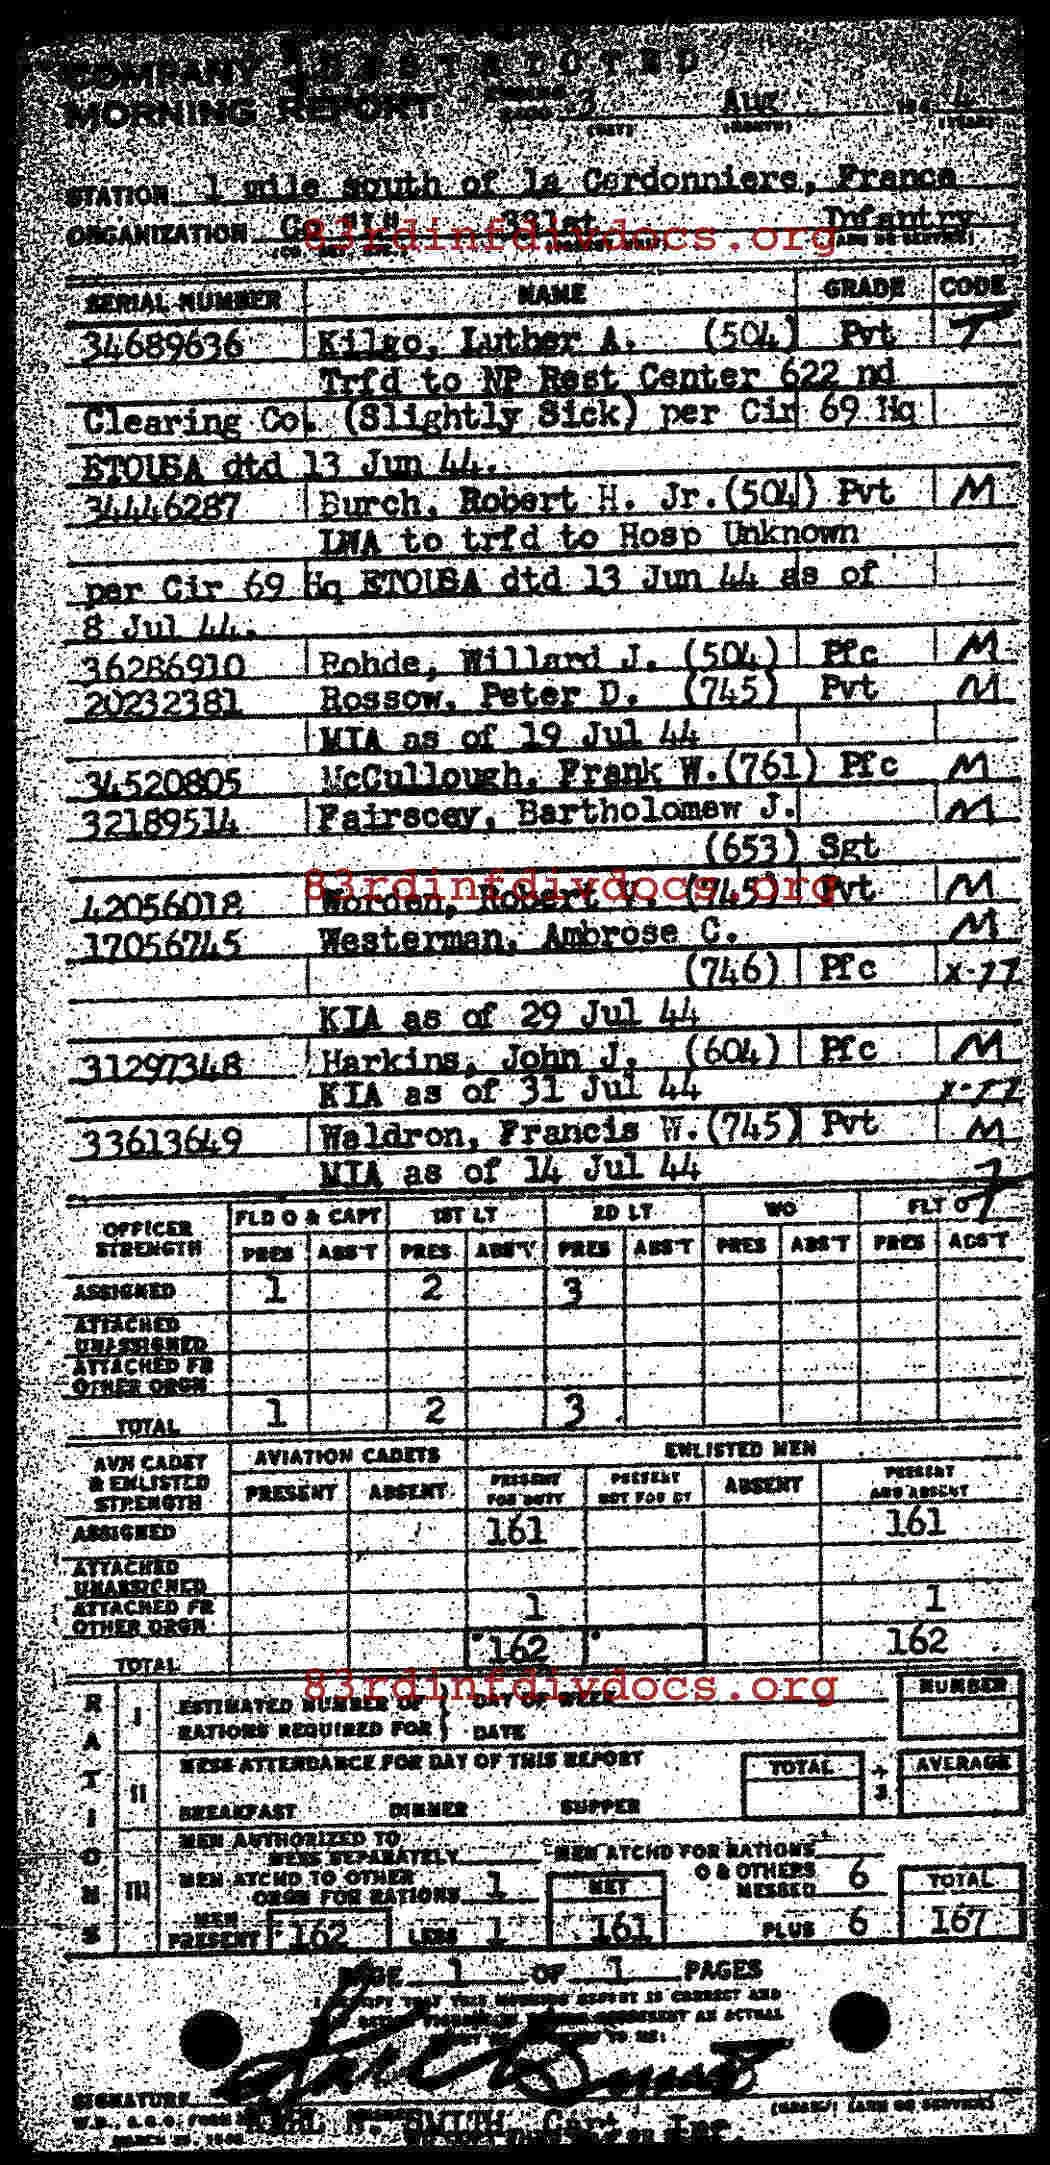 COMPANY RESTRICTED
MORNING REPORT ENDING 2400 3 Aug 194 4
(DAY) (MONTH) (YEAR)
STATION 1 mile south of la Cordonniere, France
ORGANIZATION 331st Infantry
83rdinfdivdocs.org
SERIAL NUMBER NAME GRADE CODE
34689636 Kilgo, Luther A. (504) Pvt T
Trfd to NP Rest Center 622 nd
Clearing Co. (Slightly Sick) per Cir 69 Hq
ETOUSA dtd 13 Jun 44.
34446287 Burch, Robert H. Jr.(504) Pvt M
LWA to trfd to Hosp Unknown
per Cir 69 Hq ETOUSA dtd 13 Jun 44 as of
8 Jul 44.
36286910 Rohde, Willard J. (504) Pfc M
20232381 Rossow, Peter D. (745) Pvt M
MIA as of 19 Jul 44
34520805 McCullough, Frank W.(761) Pfc M
32189514 Fairscey, Bartholomew J. M
(653) Sgt
83rdinfdivdocs.org
42056018 Worden, Robert V. (745) Pvt M
17056745 Westerman, Ambrose C. M
(746) Pfc X-77
KIA as of 29 Jul 44
31297348 Harkins, John J. (604) Pfc M
KIA as of 31 Jul 44 X-77
33613649 Waldron, Francis W.(745) Pvt M
MIA as of 14 Jul 44 7
OFFICER STRENGTH FLD O & CAPT 1ST LT 2D LT WO FLT O
PRES ABS'T PRES ABS'T PRES ABS'T PRES ABS'T PRES ABS'T
ASSIGNED 1 2 3
ATTACHED UNASSIGNED
ATTACHED FR OTHER ORGN
TOTAL 1 2 3
AVN CADET & ENLISTED STRENGTH AVIATION CADETS ENLISTED MEN
PRESENT ABSENT PRESENT FOR DUTY PRESENT NOT FOR DY ABSENT PRESENT AND ABSENT
ASSIGNED 161 161
ATTACHED UNASSIGNED
ATTACHED FR OTHER ORGN 1 1
TOTAL 162 162
83rdinfdivdocs.org
RATIONS
I ESTIMATED NUMBER OF RATIONS REQUIRED FOR } DAY OF WEEK DATE NUMBER
II MESS ATTENDANCE FOR DAY OF THIS REPORT TOTAL ÷ 3 AVERAGE
BREAKFAST DINNER SUPPER
III MEN AUTHORIZED TO MESS SEPARATELY MEN ATCHD FOR RATIONS
MEN ATCHD TO OTHER ORGN FOR RATIONS 1 NET O & OTHERS MESSED 6 TOTAL
MEN PRESENT 162 LESS 1 161 PLUS 6 167
PAGE 1 OF 1 PAGES
I CERTIFY THAT THIS MORNING REPORT IS CORRECT AND
SIGNATURE
W.D., A.G.O. FORM
SMITH, Capt Inf